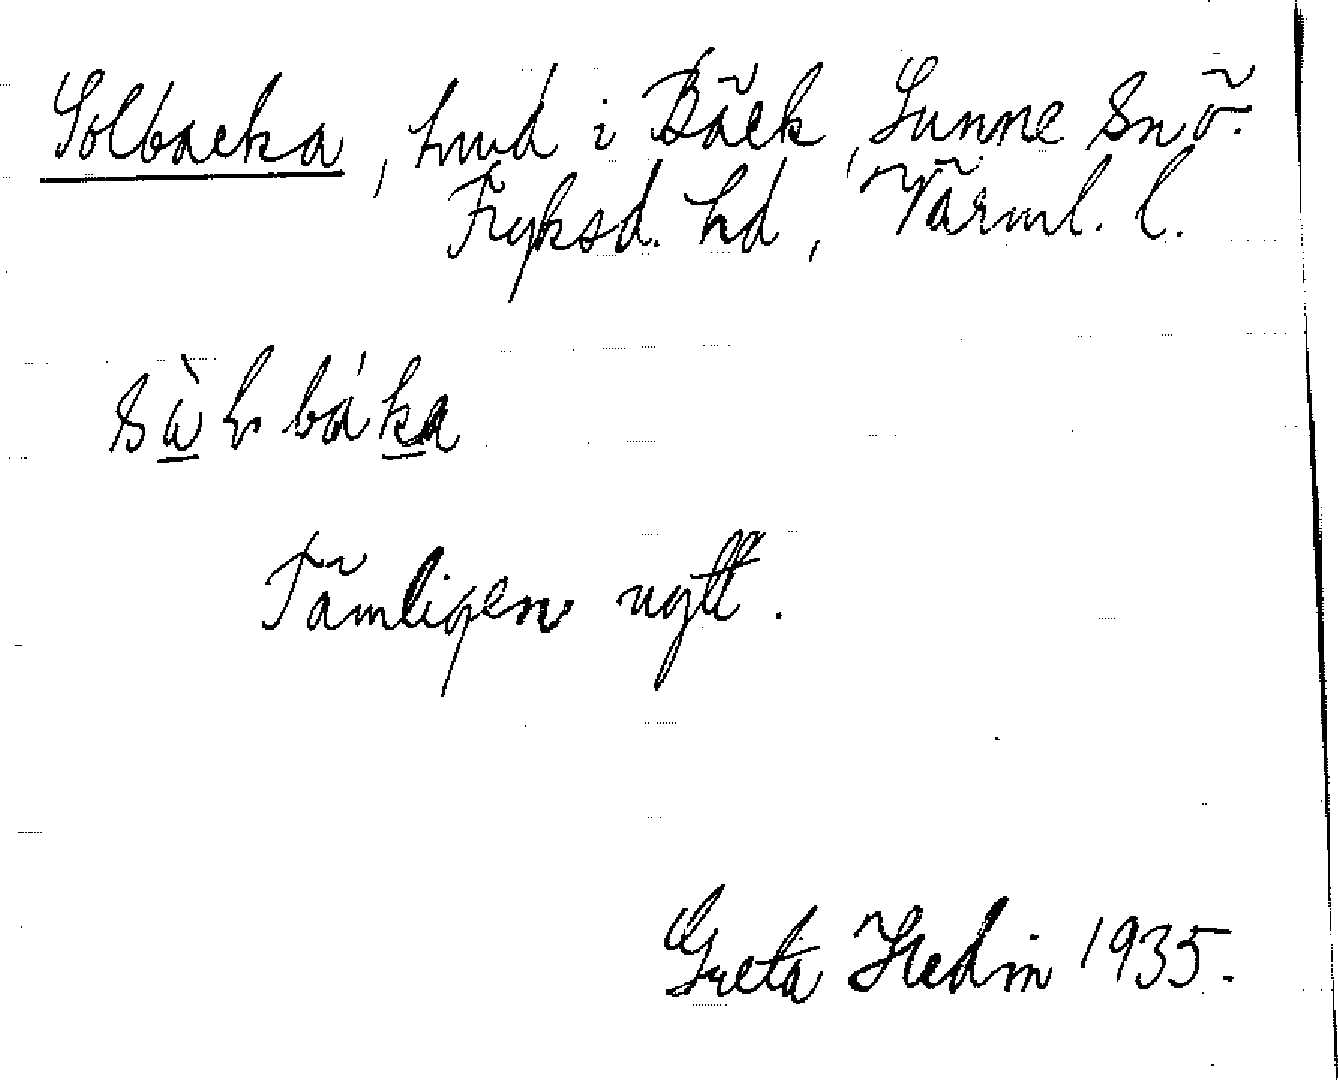 Solbacka, hmd i Bäck, Sunne Snö.
Fryksd. hd, Värml. l.
Tämligen nytt.
Greta Hedin 1935.